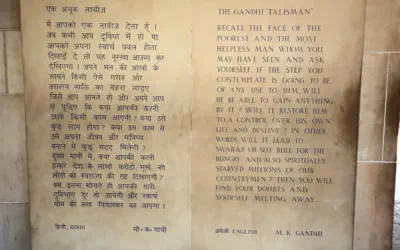 एक अचूक तावीज़
मैं आपको एक तावीज़ देता हूँ ।
जब कभी आप दुविधा में हों या
आपको अपना स्वार्थ प्रबल होता
दिखाई दे तो यह नुस्खा आज़मा कर
देखिएगा । अपने मन की आंखों के
सामने किसी ऐसे गरीब और
असहाय व्यक्ति का चेहरा लाइए
जिसे आप जानते हों और अपने आप
से पूछिए कि क्या आपकी करनी
उसके किसी काम आएगी । क्या उसे
कुछ लाभ होगा ? क्या उस काम से
उसे अपना जीवन और भविष्य
बनाने में कुछ मदद मिलेगी ?
दूसरे मानी में, क्या आपकी करनी
हमारे देश के लाखों करोड़ों, भूखे, नंगे
लोगों को स्वराज्य की राह दिखाएगी ?
बस इतना सोचते ही आपकी सारी
दुविधाएं दूर हो जाएंगी और स्वार्थ
मोम की तरह पिघलकर बह जाएगा ।
हिन्दी, HINDI
मो॰क॰ गांधी
THE GANDHI 'TALISMAN'
RECALL THE FACE OF THE
POOREST AND THE MOST
HELPLESS MAN WHOM YOU
MAY HAVE SEEN AND ASK
YOURSELF, IF THE STEP YOU
CONTEMPLATE IS GOING TO BE
OF ANY USE TO HIM, WILL
HE BE ABLE TO GAIN ANYTHING
BY IT? WILL IT RESTORE HIM
TO A CONTROL OVER HIS OWN
LIFE AND DESTINY? IN OTHER
WORDS WILL IT LEAD TO
SWARAJ OR SELF RULE FOR THE
HUNGRY AND ALSO SPIRITUALLY
STARVED MILLIONS OF OUR
COUNTRYMEN? THEN YOU WILL
FIND YOUR DOUBTS AND
YOURSELF MELTING AWAY.
अंग्रेज़ी ENGLISH
M. K. GANDHI